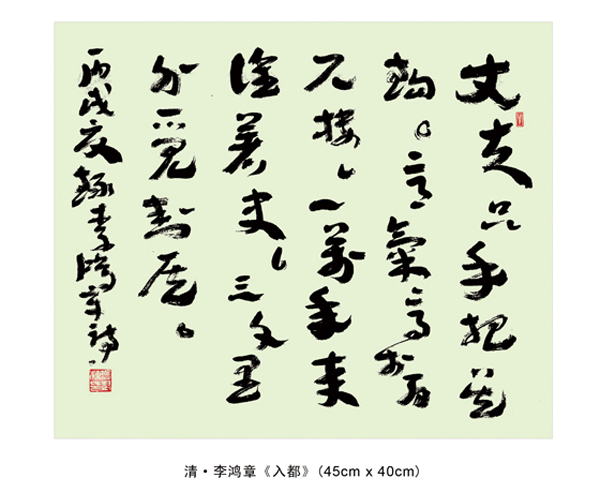 丈夫只手把吴
鈎。意氣高於百
尺楼，一萬年来
谁著史，三千里
外觅封侯。
丙戌夏録李鸿章诗
清·李鸿章《入都》（45cm x 40cm）